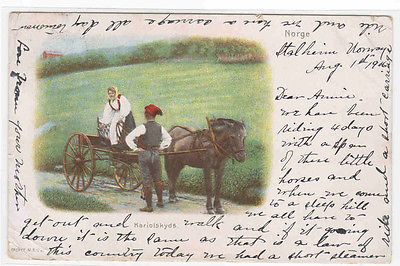 Norge
Stalheim Norway
Aug. 1st 19
Dear Annie
We have
been
riding 4 days
with a span
of these little
horses
and
when we
come to
a steep hill
we all have to
get out and walk and if it is going
down it is the same as that is a law of
this country today we had a short steamer
ride and a short carriage
ride and
and we have a carriage all day tomorrow
Love from
your
Kariolskyds.